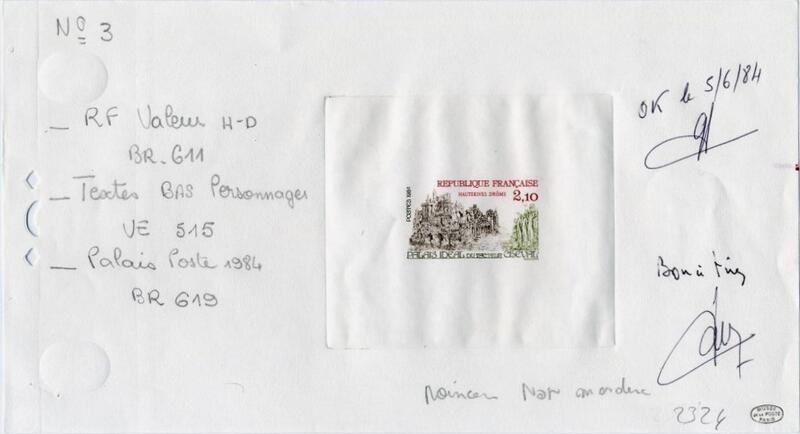 Nº 3
— RF Valeur H-D
BR. 611
— Textes BAS Personnages
VE 515
— Palais Poste 1984
BR 619
REPUBLIQUE FRANÇAISE
HAUTERIVES DRÔME
2,10
POSTES 1984
PALAIS IDEAL DU FACTEUR CHEVAL
OK le 5/6/84
Bon à Tirer
2324
MUSÉE
DE LA POSTE
PARIS